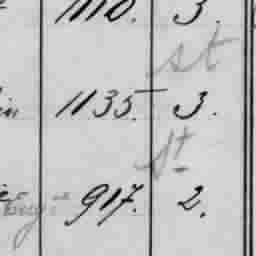 1110. 3.
st
in 1135. 3.
St
917. 2.